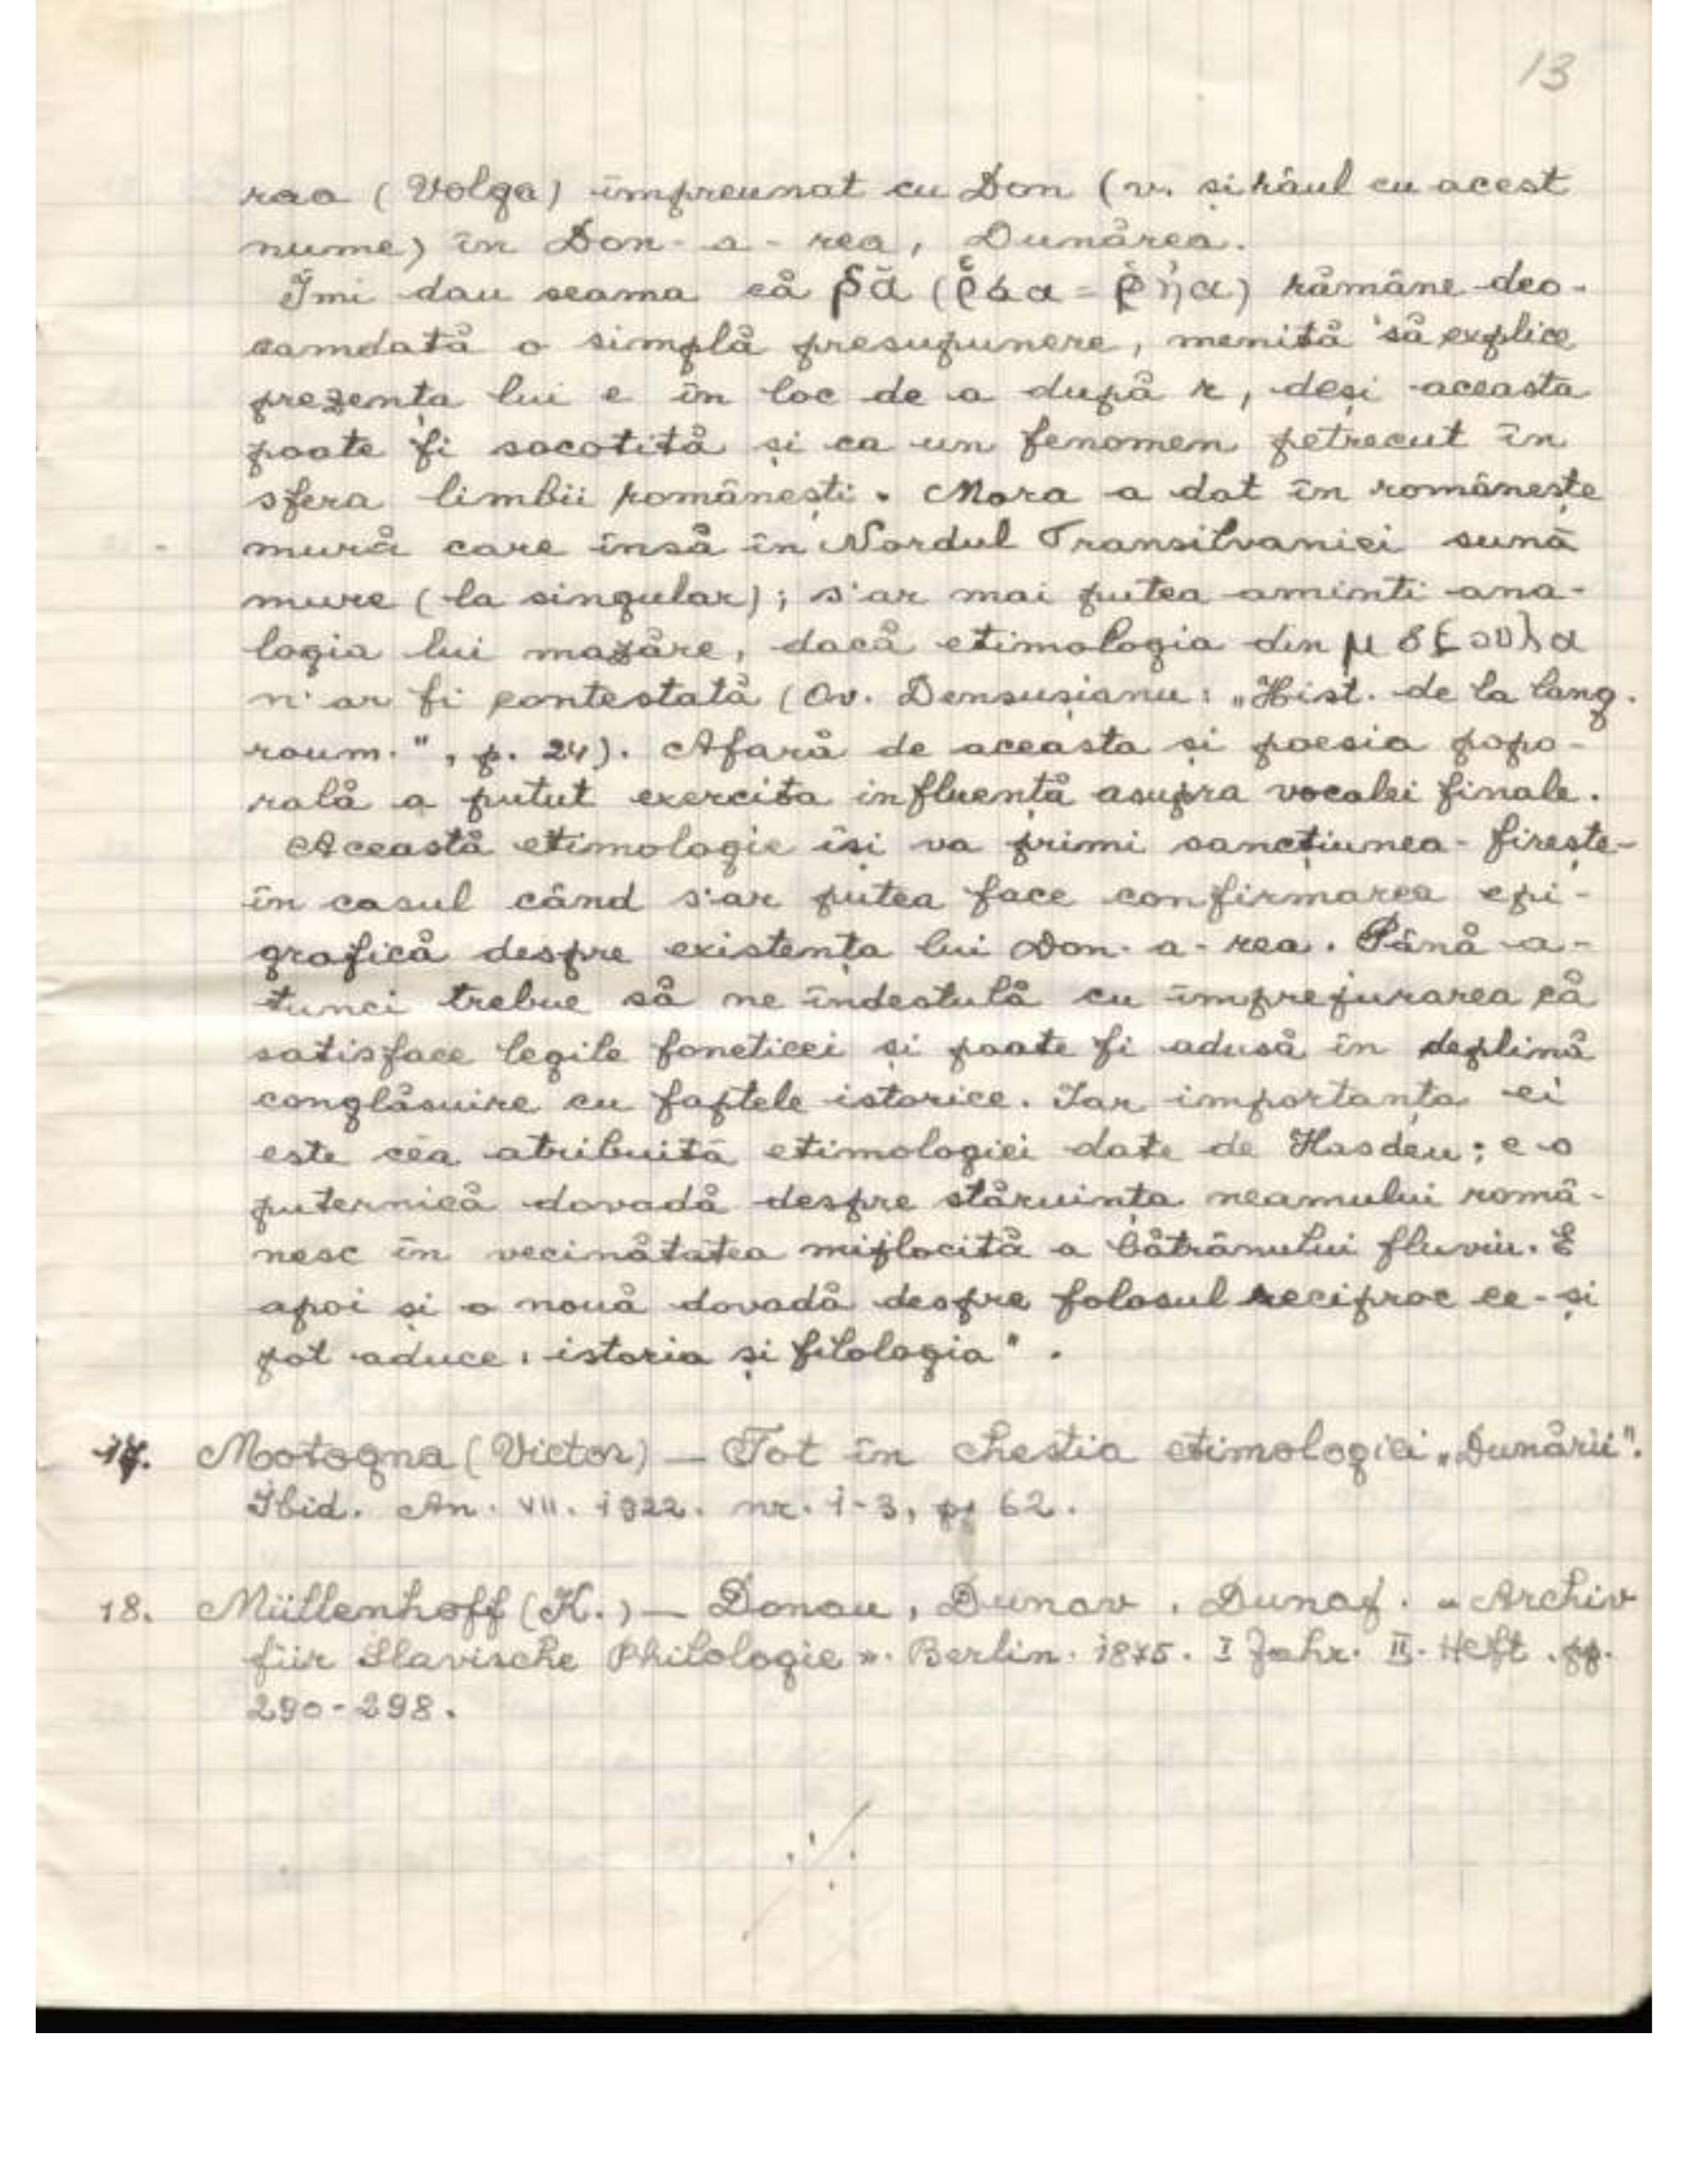 13
raa (Volga) împreunat cu Don (v. și râul cu acest
nume) în Don-a-rea, Dunărea.
Îmi dau seama că ρᾶ ( = ) rămâne deo-
camdată o simplă presupunere, menită să explice
prezența lui e în loc de a după r, deși aceasta
poate fi socotită și ca un fenomen petrecut în
sfera limbii românești. Mora a dat în românește
mură care însă în Nordul Transilvaniei sună
mure (la singular); s'ar mai putea aminti ana-
logia lui mazăre, dacă etimologia din
n'ar fi contestată (Ov. Densușianu: „Hist. de la lang.
roum.", p. 24). Afară de aceasta și poesia popo-
rală a putut exercita influență asupra vocalei finale.
Această etimologie își va primi sancțiunea - firește -
în casul când s'ar putea face confirmarea epi-
grafică despre existența lui Don-a-rea. Până a-
tunci trebue să ne îndestulă cu împrejurarea că
satisface legile foneticei și poate fi adusă în deplină
conglăsuire cu faptele istorice. Iar importanța ei
este cea atribuită etimologiei date de Hasdeu; e o
puternică dovadă despre stăruința neamului româ-
nesc în vecinătatea mijlocită a bătrânului fluviu. E
apoi și o nouă dovadă despre folosul reciproc ce-și
pot aduce: istoria și filologia".
17. Motogna (Victor) — Tot în chestia etimologiei „Dunării".
Ibid. An. VII. 1922. nr. 1-3, p. 62.
18. Müllenhoff (K.) — Donau, Dunav, Dunaj. « Archiv
für Slavische Philologie ». Berlin. 1875. I Jahr. II. Heft. pp.
290-298.